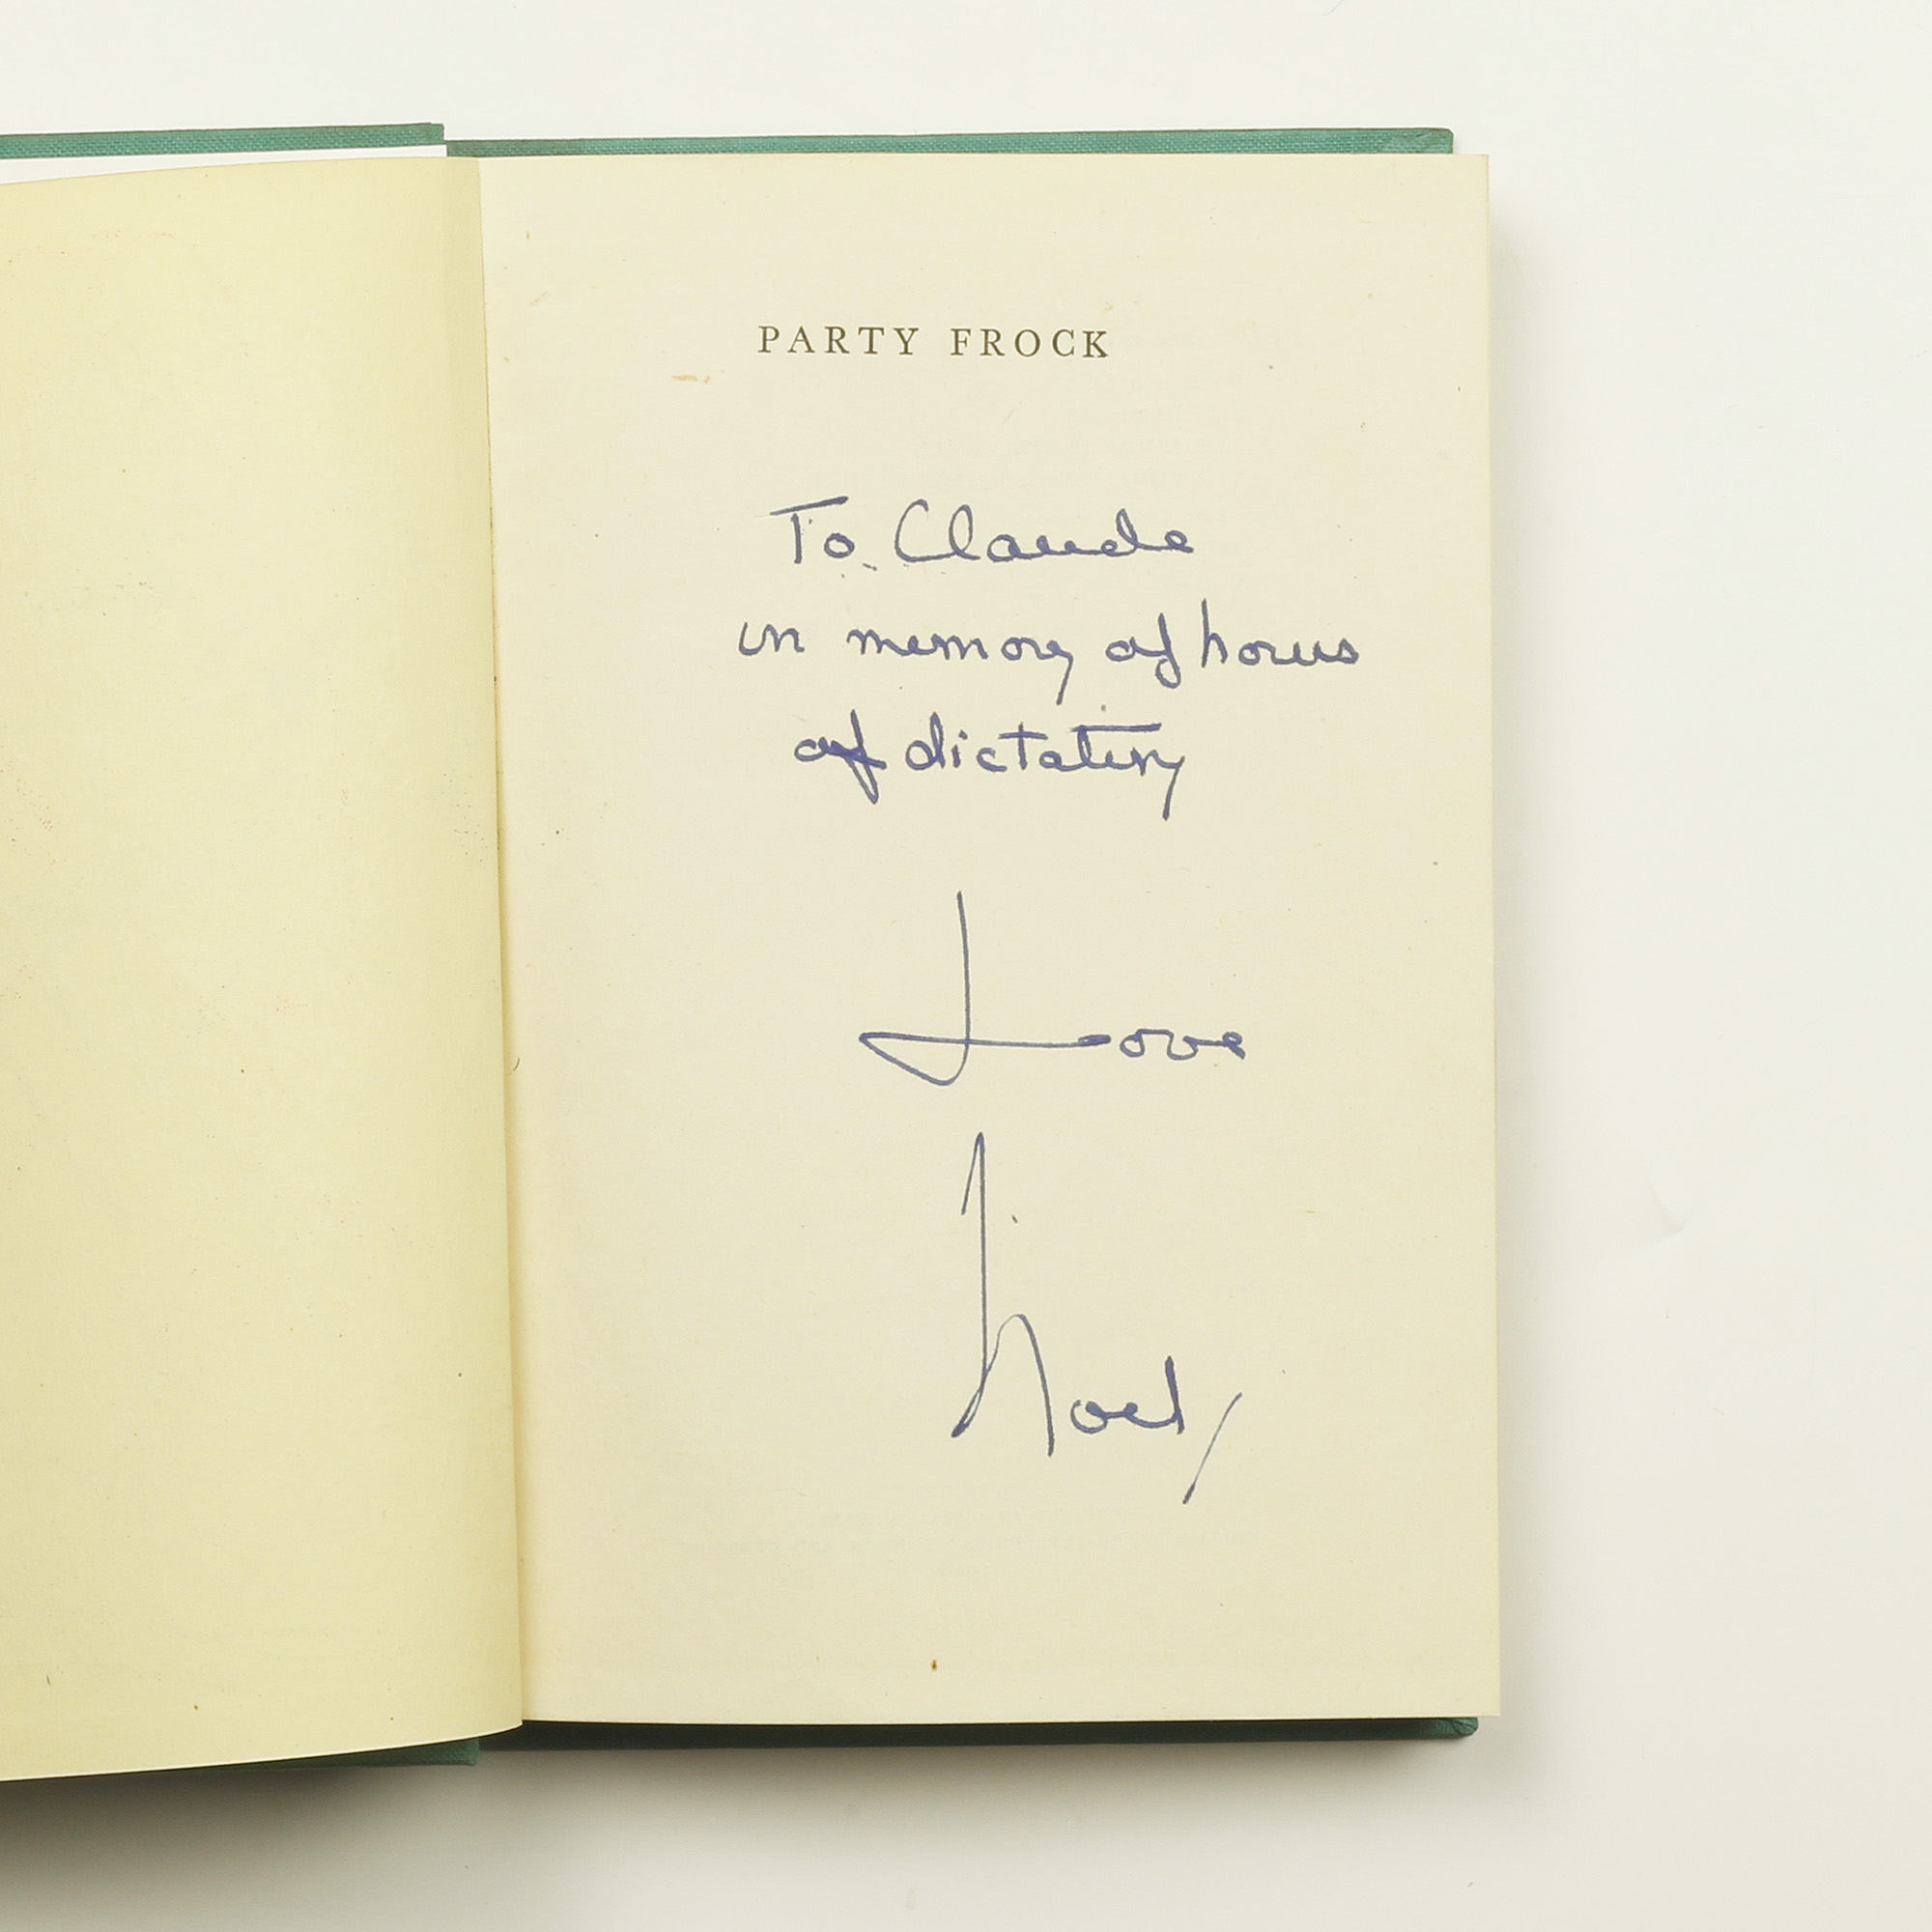 PARTY FROCK
To Claude
in memory of hours
of dictating
Love
Noel